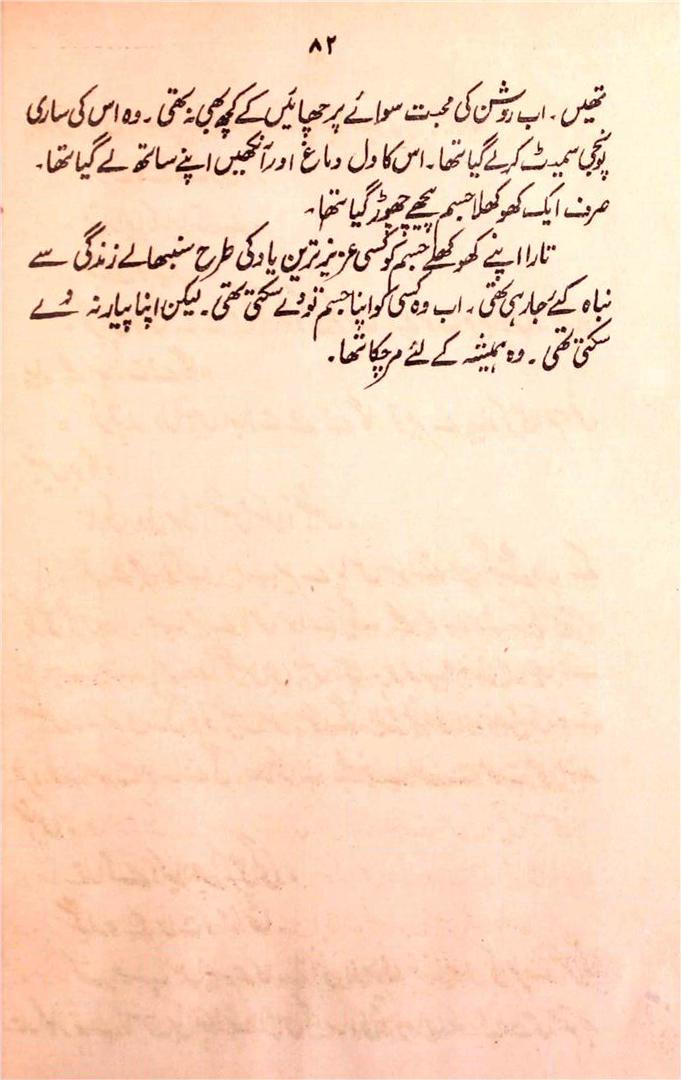 ۸۲
تھیں۔ اب روشن کی محبت سوائے پرچھائیں کے کچھ بھی نہ تھی۔ وہ اس کی ساری
پونجی سمیٹ کر لے گیا تھا۔ اس کا دل دماغ اور آنکھیں اپنے ساتھ لے گیا تھا۔
صرف ایک کھوکھلا جسم پیچھے چھوڑ گیا تھا۔
تارا اپنے کھوکھلے جسم کو کسی عزیز ترین یاد کی طرح سنبھالے زندگی سے
نباہ کئے جا رہی تھی۔ اب وہ کسی کو اپنا جسم تو دے سکتی تھی۔ لیکن اپنا پیار نہ دے
سکتی تھی۔ وہ ہمیشہ کے لئے مر چکا تھا۔